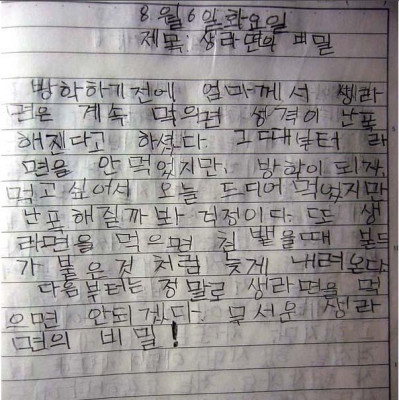 8월 6일 화요일
제목: 생라면의 비밀
방학하기전에 엄마께서 생라
면은 계속 먹으면 성격이 난폭
해진다고 하셨다. 그때부터 라
면을 안 먹었지만, 방학이 되자,
먹고 싶어서 오늘 드디어 먹었지만
난폭해질까봐 걱정이다. 또 생
라면을 먹으면 침 뱉을때 본드
가 붙은것 처럼 늦게 내려온다.
다음부터는 정말로 생라면을 먹
으면 안되겠다. 무서운 생라
면의 비밀!